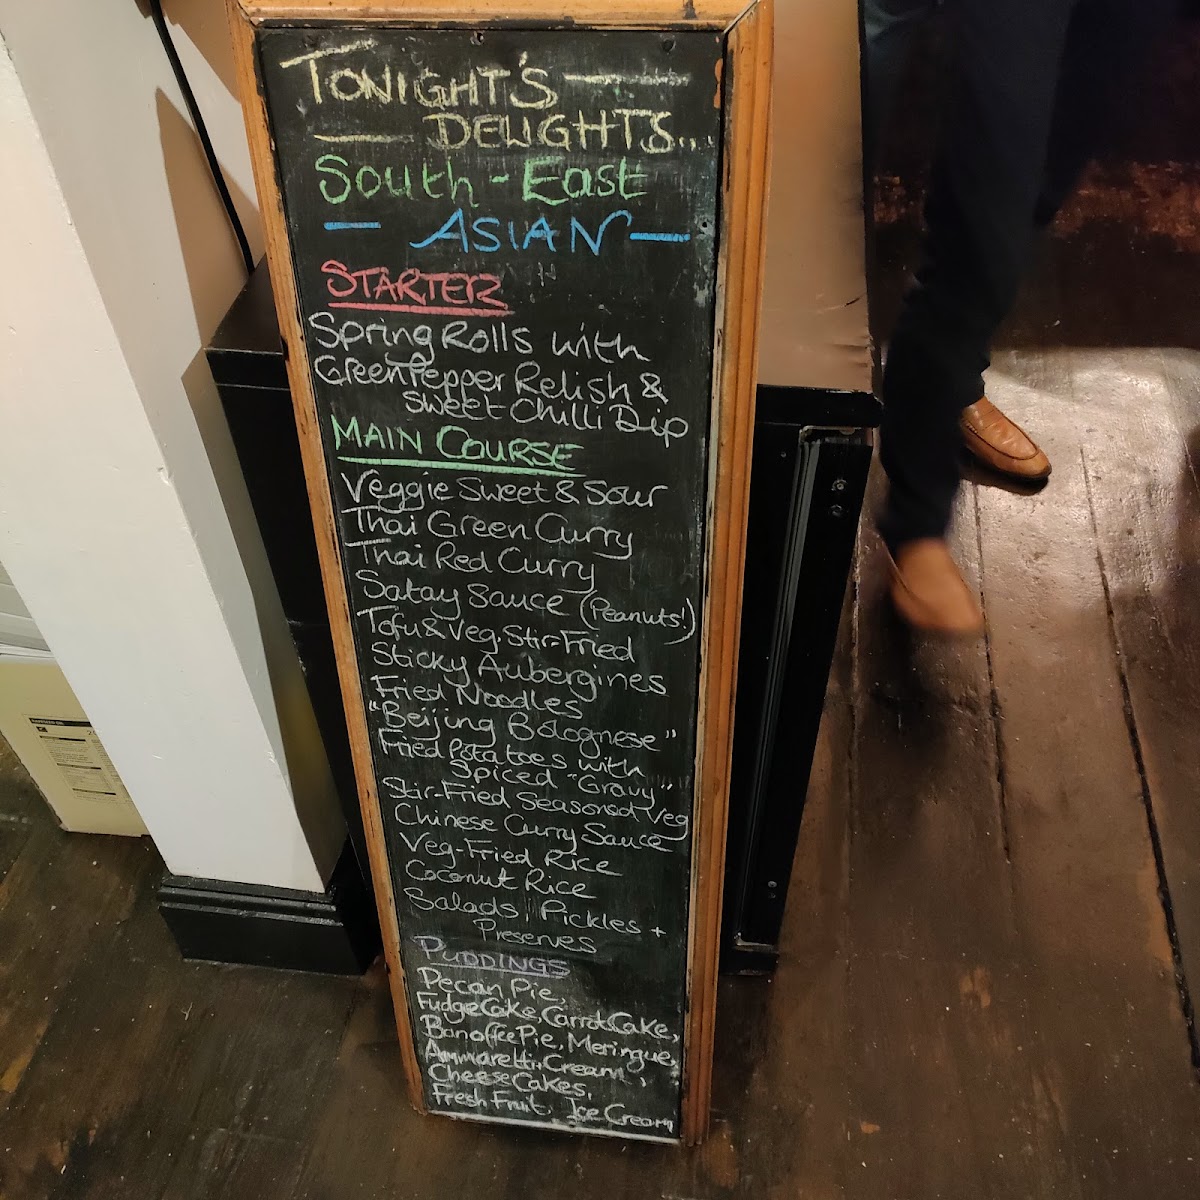 TONIGHT'S
DELIGHTS...
South-East
ASIAN
STARTER
Spring Rolls with
Green Pepper Relish &
Sweet Chilli Dip
MAIN COURSE
Veggie Sweet & Sour
Thai Green Curry
Thai Red Curry
Satay Sauce (Peanuts!)
Tofu & Veg. Stir-Fried
Sticky Aubergines
Fried Noodles
"Beijing Bolognese"
Fried Potatoes with
Spiced "Gravy"
Stir-Fried Seasoned Veg
Chinese Curry Sauce
Veg-Fried Rice
Coconut Rice
Salads, Pickles +
Preserves
PUDDINGS
Pecan Pie,
Fudge Cake, Carrot Cake,
Banoffee Pie, Meringue,
Ammaretti Cream,
Cheese Cakes,
Fresh Fruit, Ice Cream